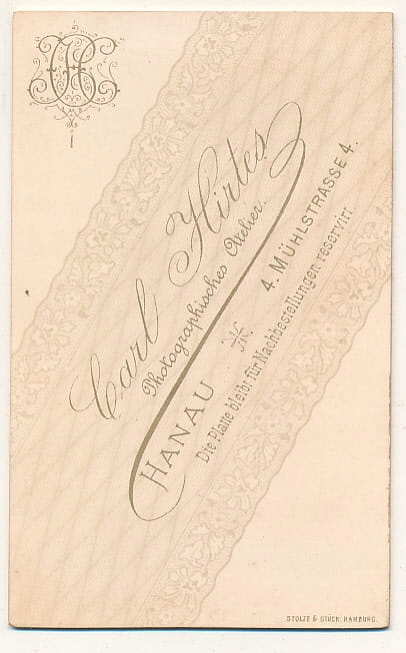 CH
Carl Hirtes
Photographisches Atelier.
HANAU
4. MÜHLSTRASSE 4.
Die Platte bleibt für Nachbestellungen reservirt.
STOLZE & STÜCK HAMBURG.